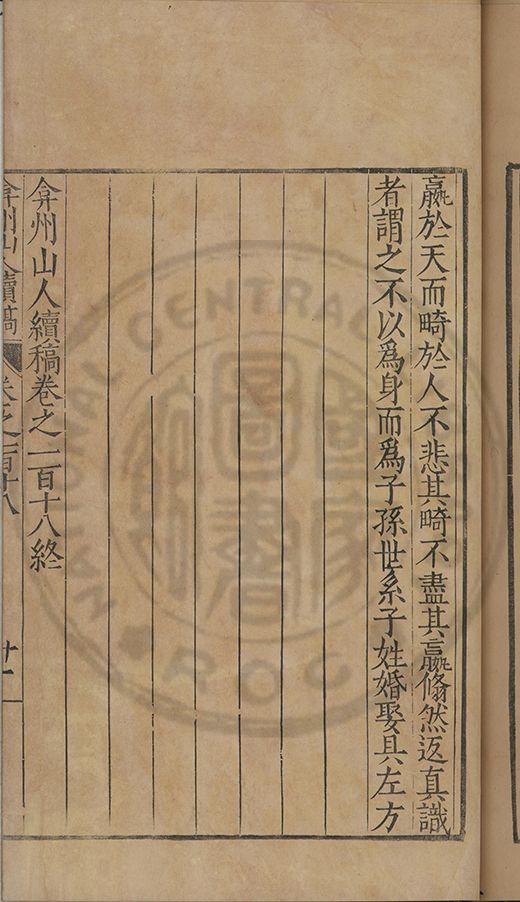 贏於天而畸於人不悲其畸不盡其贏翛然返真識
者謂之不以爲身而爲子孫世系子姓婚娶具左方
弇州山人續稿卷之一百十八終
弇州山人續稿 卷之一百十八 廿一